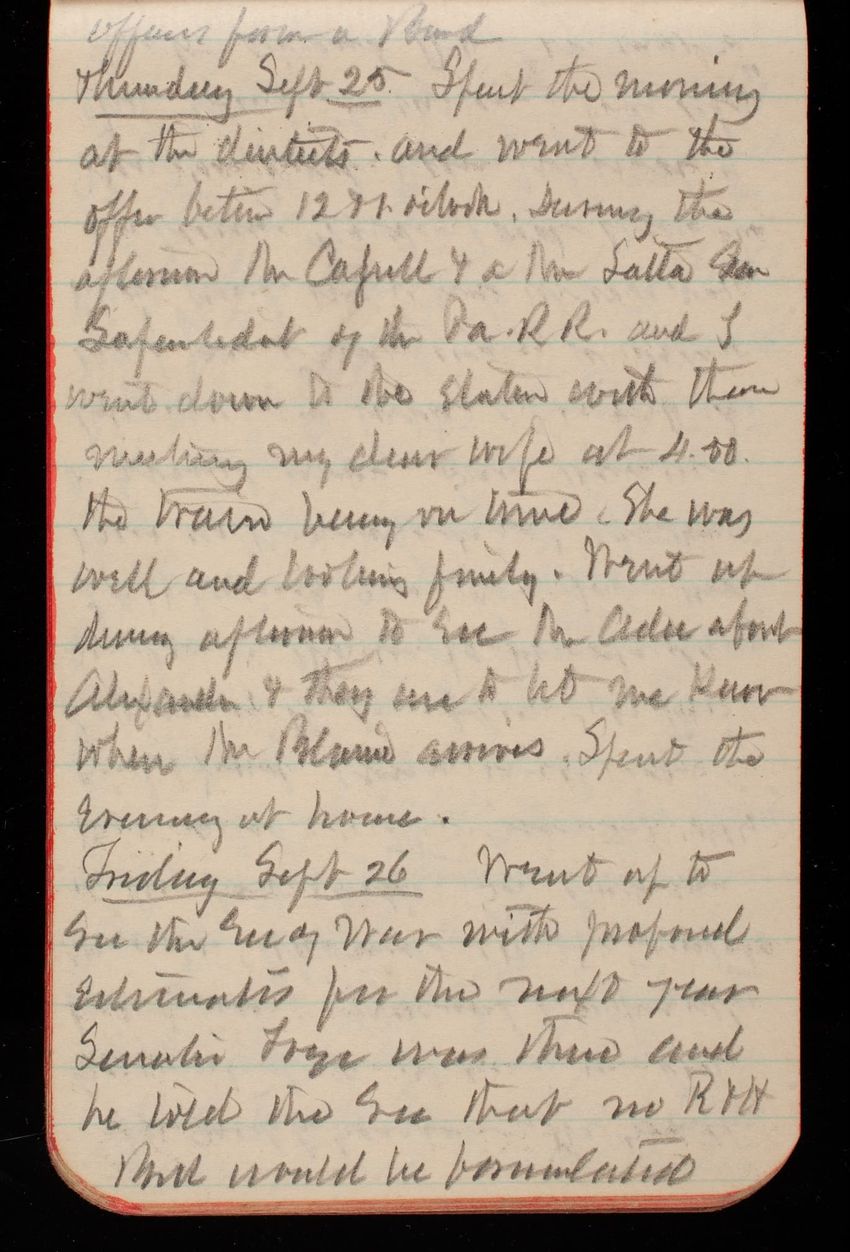 officers form a Board
Thursday Sept 25. Spent the morning
at the dentists. and went to the
office between 12 & 1. o'clock. During the
afternoon Mr Caprell & a Mr Latta Gen
Superintendent of the Pa. R R. and I
went down to the station with them
meeting my dear wife at 4.00.
the train being on time. She was
well and looking finely. Went up
during afternoon to see Mr Adee about
Alexander & they are to let me know
when Mr Blaine arrives. Spent the
Evening at home.
Friday Sept 26 Went up to
See the Sec of War with proposed
Estimates for the next year
Senator was there and
he told the Sec that no R & H
Bill would be formulated